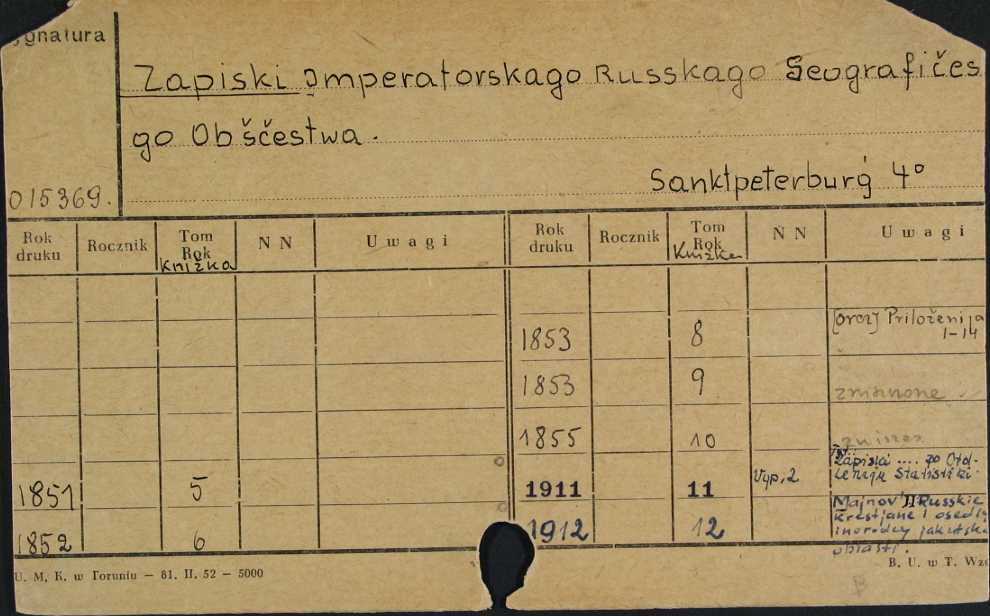 ygnatura
Zapiski Imperatorskago Russkago Geografičes
go Obščestwa.
Sanktpeterburg 4°
015369.
Rok druku Rocznik Tom Rok Knižka N N Uwagi Rok druku Rocznik Tom Rok Knižka N N Uwagi
1853 8 [oraz] Priloženija
1-14
1853 9
1855 10
1851 5 1911 11 Vyp. 2 Zapiski .... po Otd-
leniju Statistiki
1852 6 1912 12 Majnov II Russkie
krestjane i osedly
inorodcy jakutsk.
oblasti.
U. M. K. w Toruniu — 81. II. 52 — 5000
B. U. w T. Wzó
B